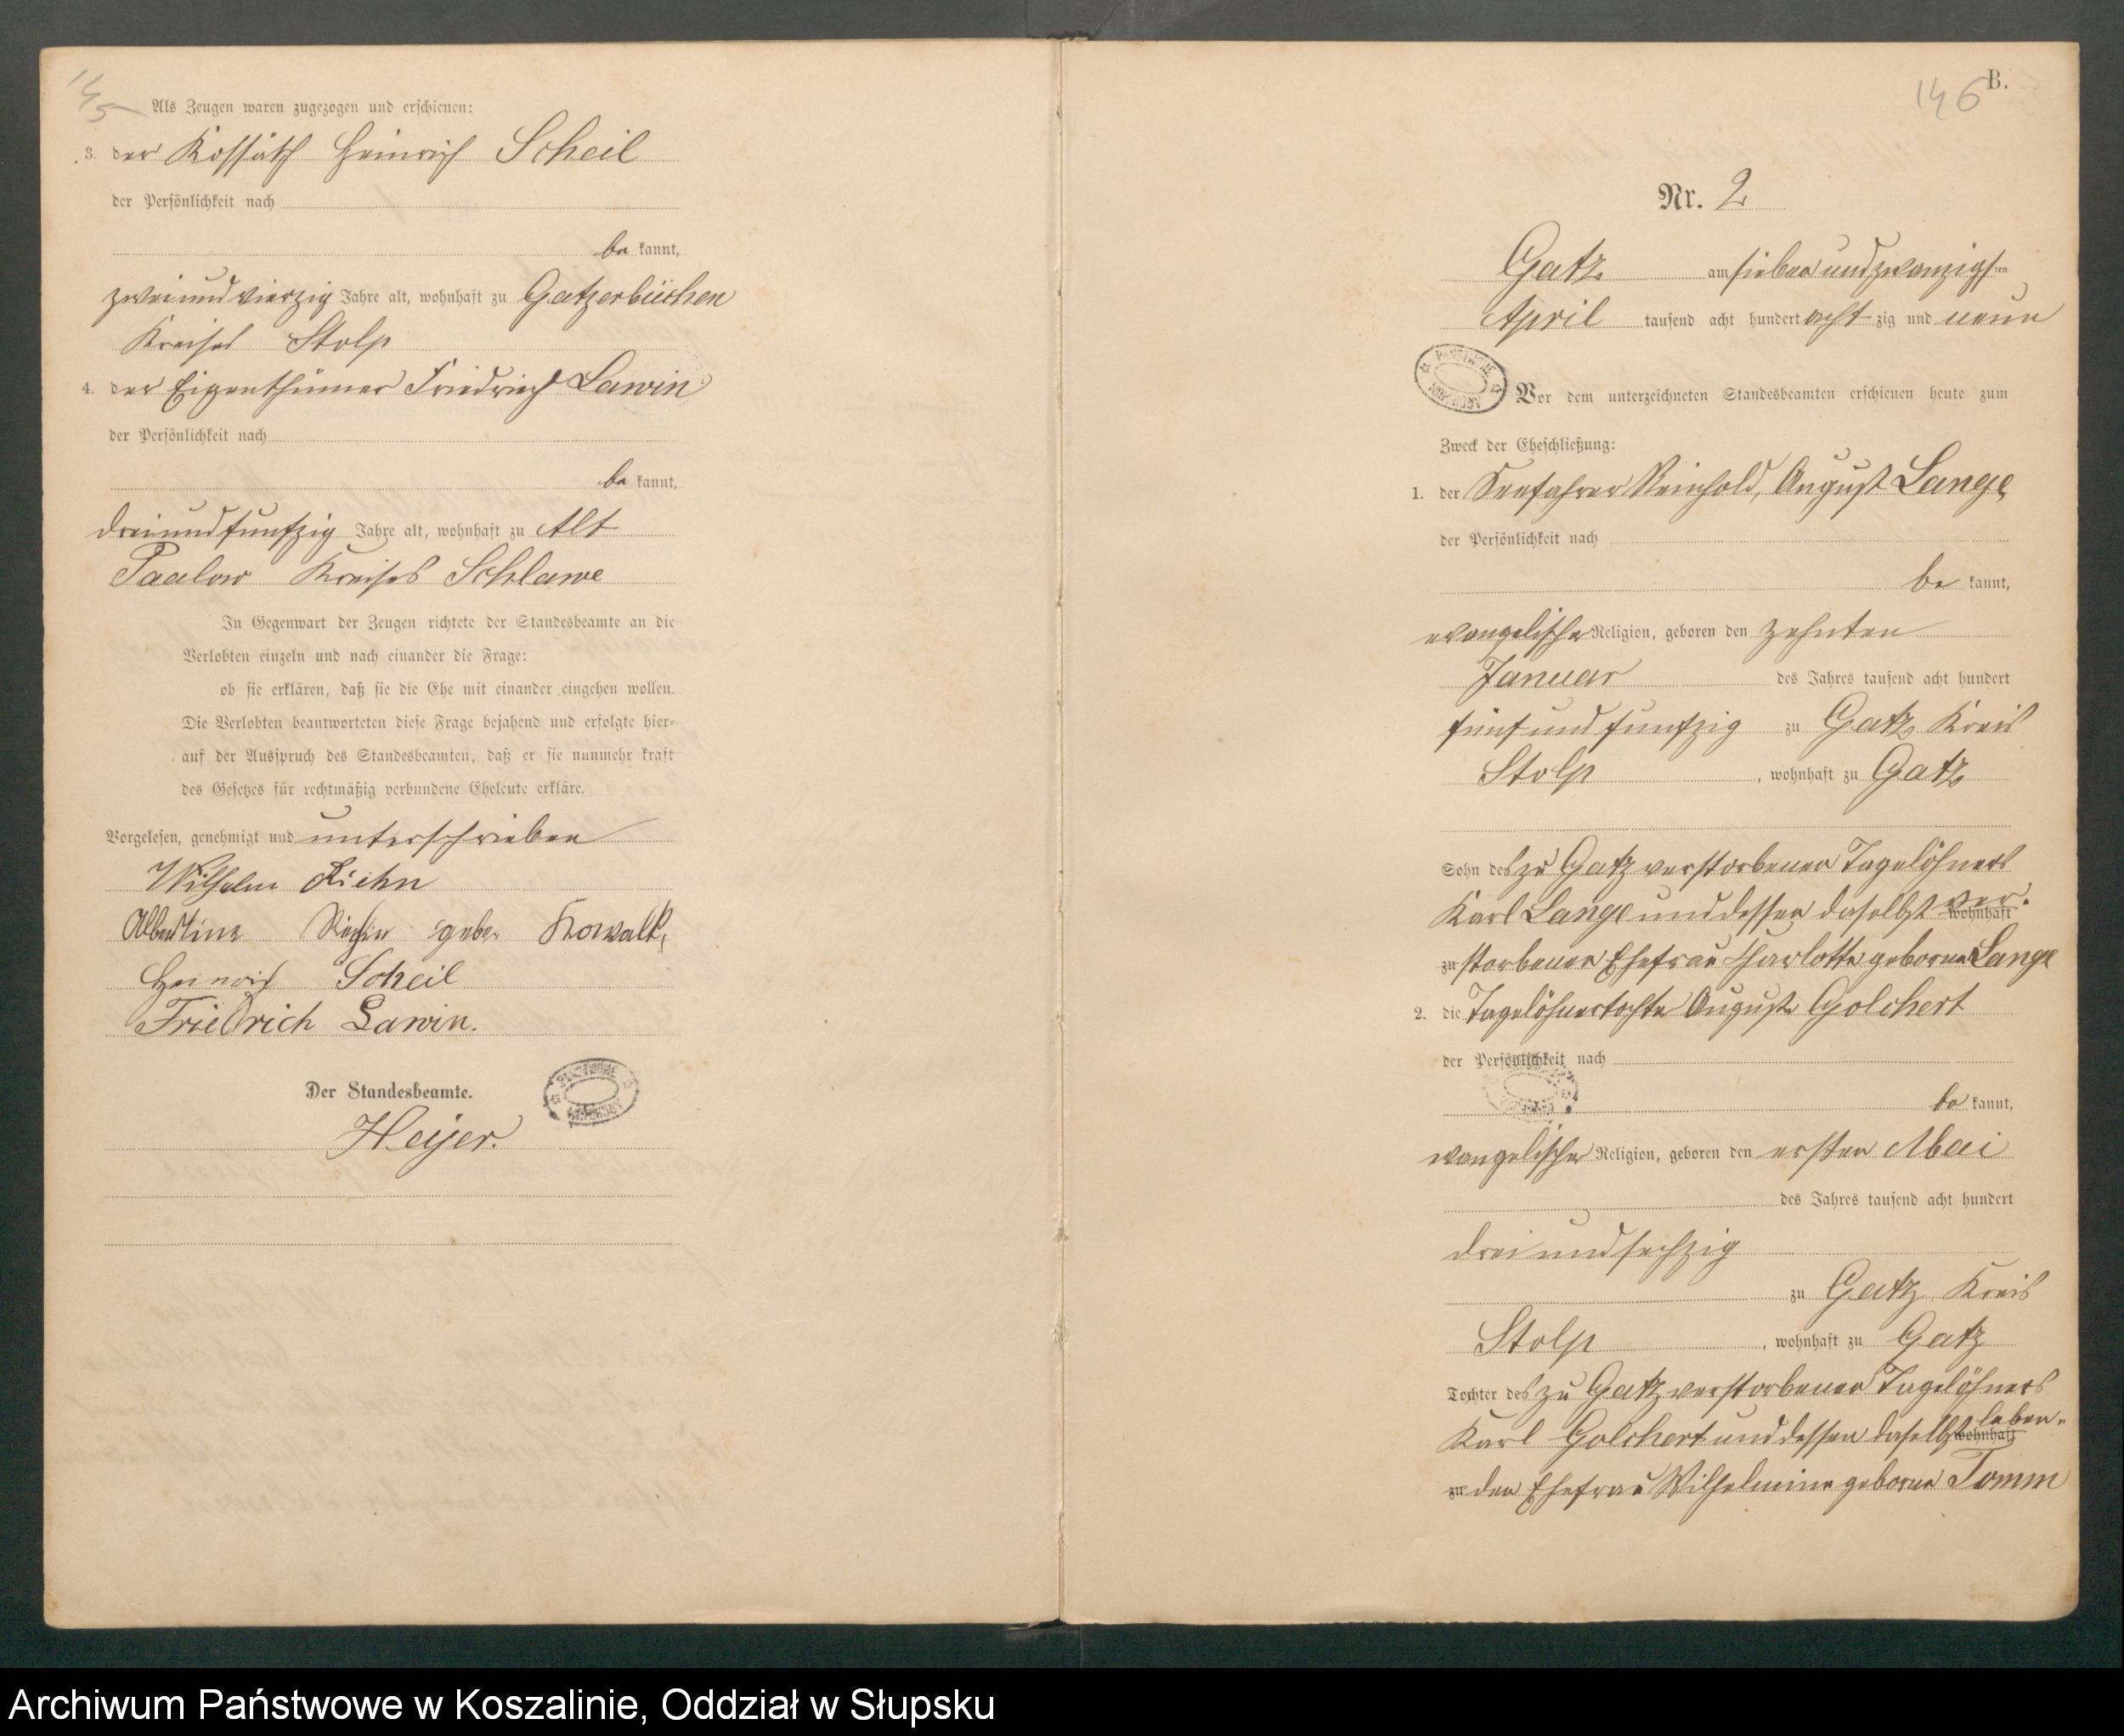 145
Als Zeugen waren zugezogen und erschienen:
3. der Kossäth Heinrich Scheil
der Persönlichkeit nach
be kannt,
zweiundvierzig Jahre alt, wohnhaft zu Gatzerbüchen
Kreises Stolp
4. der Eigenthümer Friedrich Lawin
der Persönlichkeit nach
be kannt,
dreiundfunfzig Jahre alt, wohnhaft zu Alt
Paalow Kreises Schlawe
In Gegenwart der Zeugen richtete der Standesbeamte an die
Verlobten einzeln und nach einander die Frage:
ob sie erklären, daß sie die Ehe mit einander eingehen wollen.
Die Verlobten beantworteten diese Frage bejahend und erfolgte hier-
auf der Ausspruch des Standesbeamten, daß er sie nunmehr kraft
des Gesetzes für rechtmäßig verbundene Eheleute erkläre.
Vorgelesen, genehmigt und unterschrieben
Wilhelm Riehn
Albertine geb. Kowalk,
Heinrich Scheil
Friedrich Lawin.
Der Standesbeamte.
Heyer.
146 B.
Nr. 2
Gatz am siebenundzwanzigsten
April tausend acht hundert acht zig und neun
PAŃSTWOWE ARCHIWUM
Vor dem unterzeichneten Standesbeamten erschienen heute zum
Zweck der Eheschließung:
1. der Seefahrer Reinhold, August Lange
der Persönlichkeit nach
be kannt,
evangelischer Religion, geboren den zehnten
Januar des Jahres tausend acht hundert
fünf und funfzig zu Gatz Kreis
Stolp, wohnhaft zu Gatz
Sohn des zu Gatz verstorbenen Tagelöhners
Karl Lange und dessen daselbst ver- wohnhaft
zu storbenen Ehefrau Charlotte geborne Lange
2. die Tagelöhnertochter Auguste Golchert
der Persönlichkeit nach
be kannt,
evangelischer Religion, geboren den ersten Mai
des Jahres tausend acht hundert
drei und sechzig
zu Gatz Kreis
Stolp, wohnhaft zu Gatz
Tochter des zu Gatz verstorbenen Tagelöhners
Karl Golchert und dessen daselbst leben- wohnhaft
zu den Ehefrau Wilhelmine geborne Tomm
Archiwum Państwowe w Koszalinie, Oddział w Słupsku